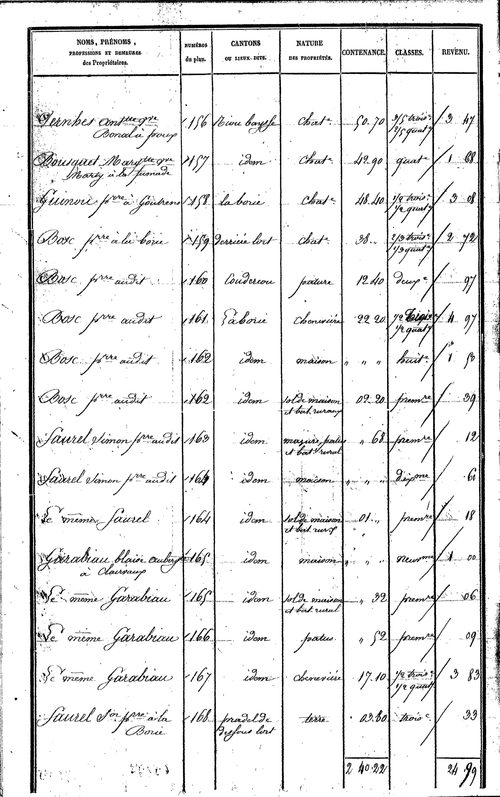 NOMS, PRÉNOMS, PROFESSIONS ET DEMEURES des Propriétaires. NUMÉROS du plan. CANTONS OU LIEUX-DITS. NATURE DES PROPRIÉTÉS. CONTENANCE. CLASSES. REVENU.
156 chat.e 50.70 2/5 quat.e 3 47
Bonal à
Bousquet 157 idem Chat.e 42.90 quat.e 1 88
Marcy à la fumade
Guinoir p.rre à Goutrens 158 la borie chat.e 48.40 1/2 trois.e 1/2 quat.e 3 08
Bosc p.rre à la borie 159 Derrière lort chat.e 38 2/3 trois.e 1/3 quat.e 2 72
Bosc p.rre audit 160 Coudercou pature 12.40 deux.e 97
Bosc p.rre audit 161 Laborie cheneviére 22.20 1/2 quat.e 4 97
Bosc p.rre audit 162 idem maison " " " huit.e 1 50
Bosc p.rre audit 162 idem sol de maison et bat. ruraux 02.20 prem.re 39
Saurel Simon p.rre audit 163 idem mazure, patus et bat. rural " 68 prem.re 12
Saurel Simon p.rre audit 164 idem maison " " "
Le même Saurel 164 idem sol de maison et bat. rur.x 01 " prem.re 18
Garabiau blaise auberg. 165 idem maison " " " neuv.me 1 00
à Clairvaux
Le même Garabiau 165 idem sol de maison et bat. rural " 32 prem.re 06
Le même Garabiau 166 idem patus " 52 prem.re 09
Le même Garabiau 167 idem cheneviére 17.10 1/2 trois.e 1/2 quat.e 3 83
Saurel S.on p.rre à la 168 pradel de terre 03.80 trois.e 33
Borie dessous lort
2 40.22 24 99